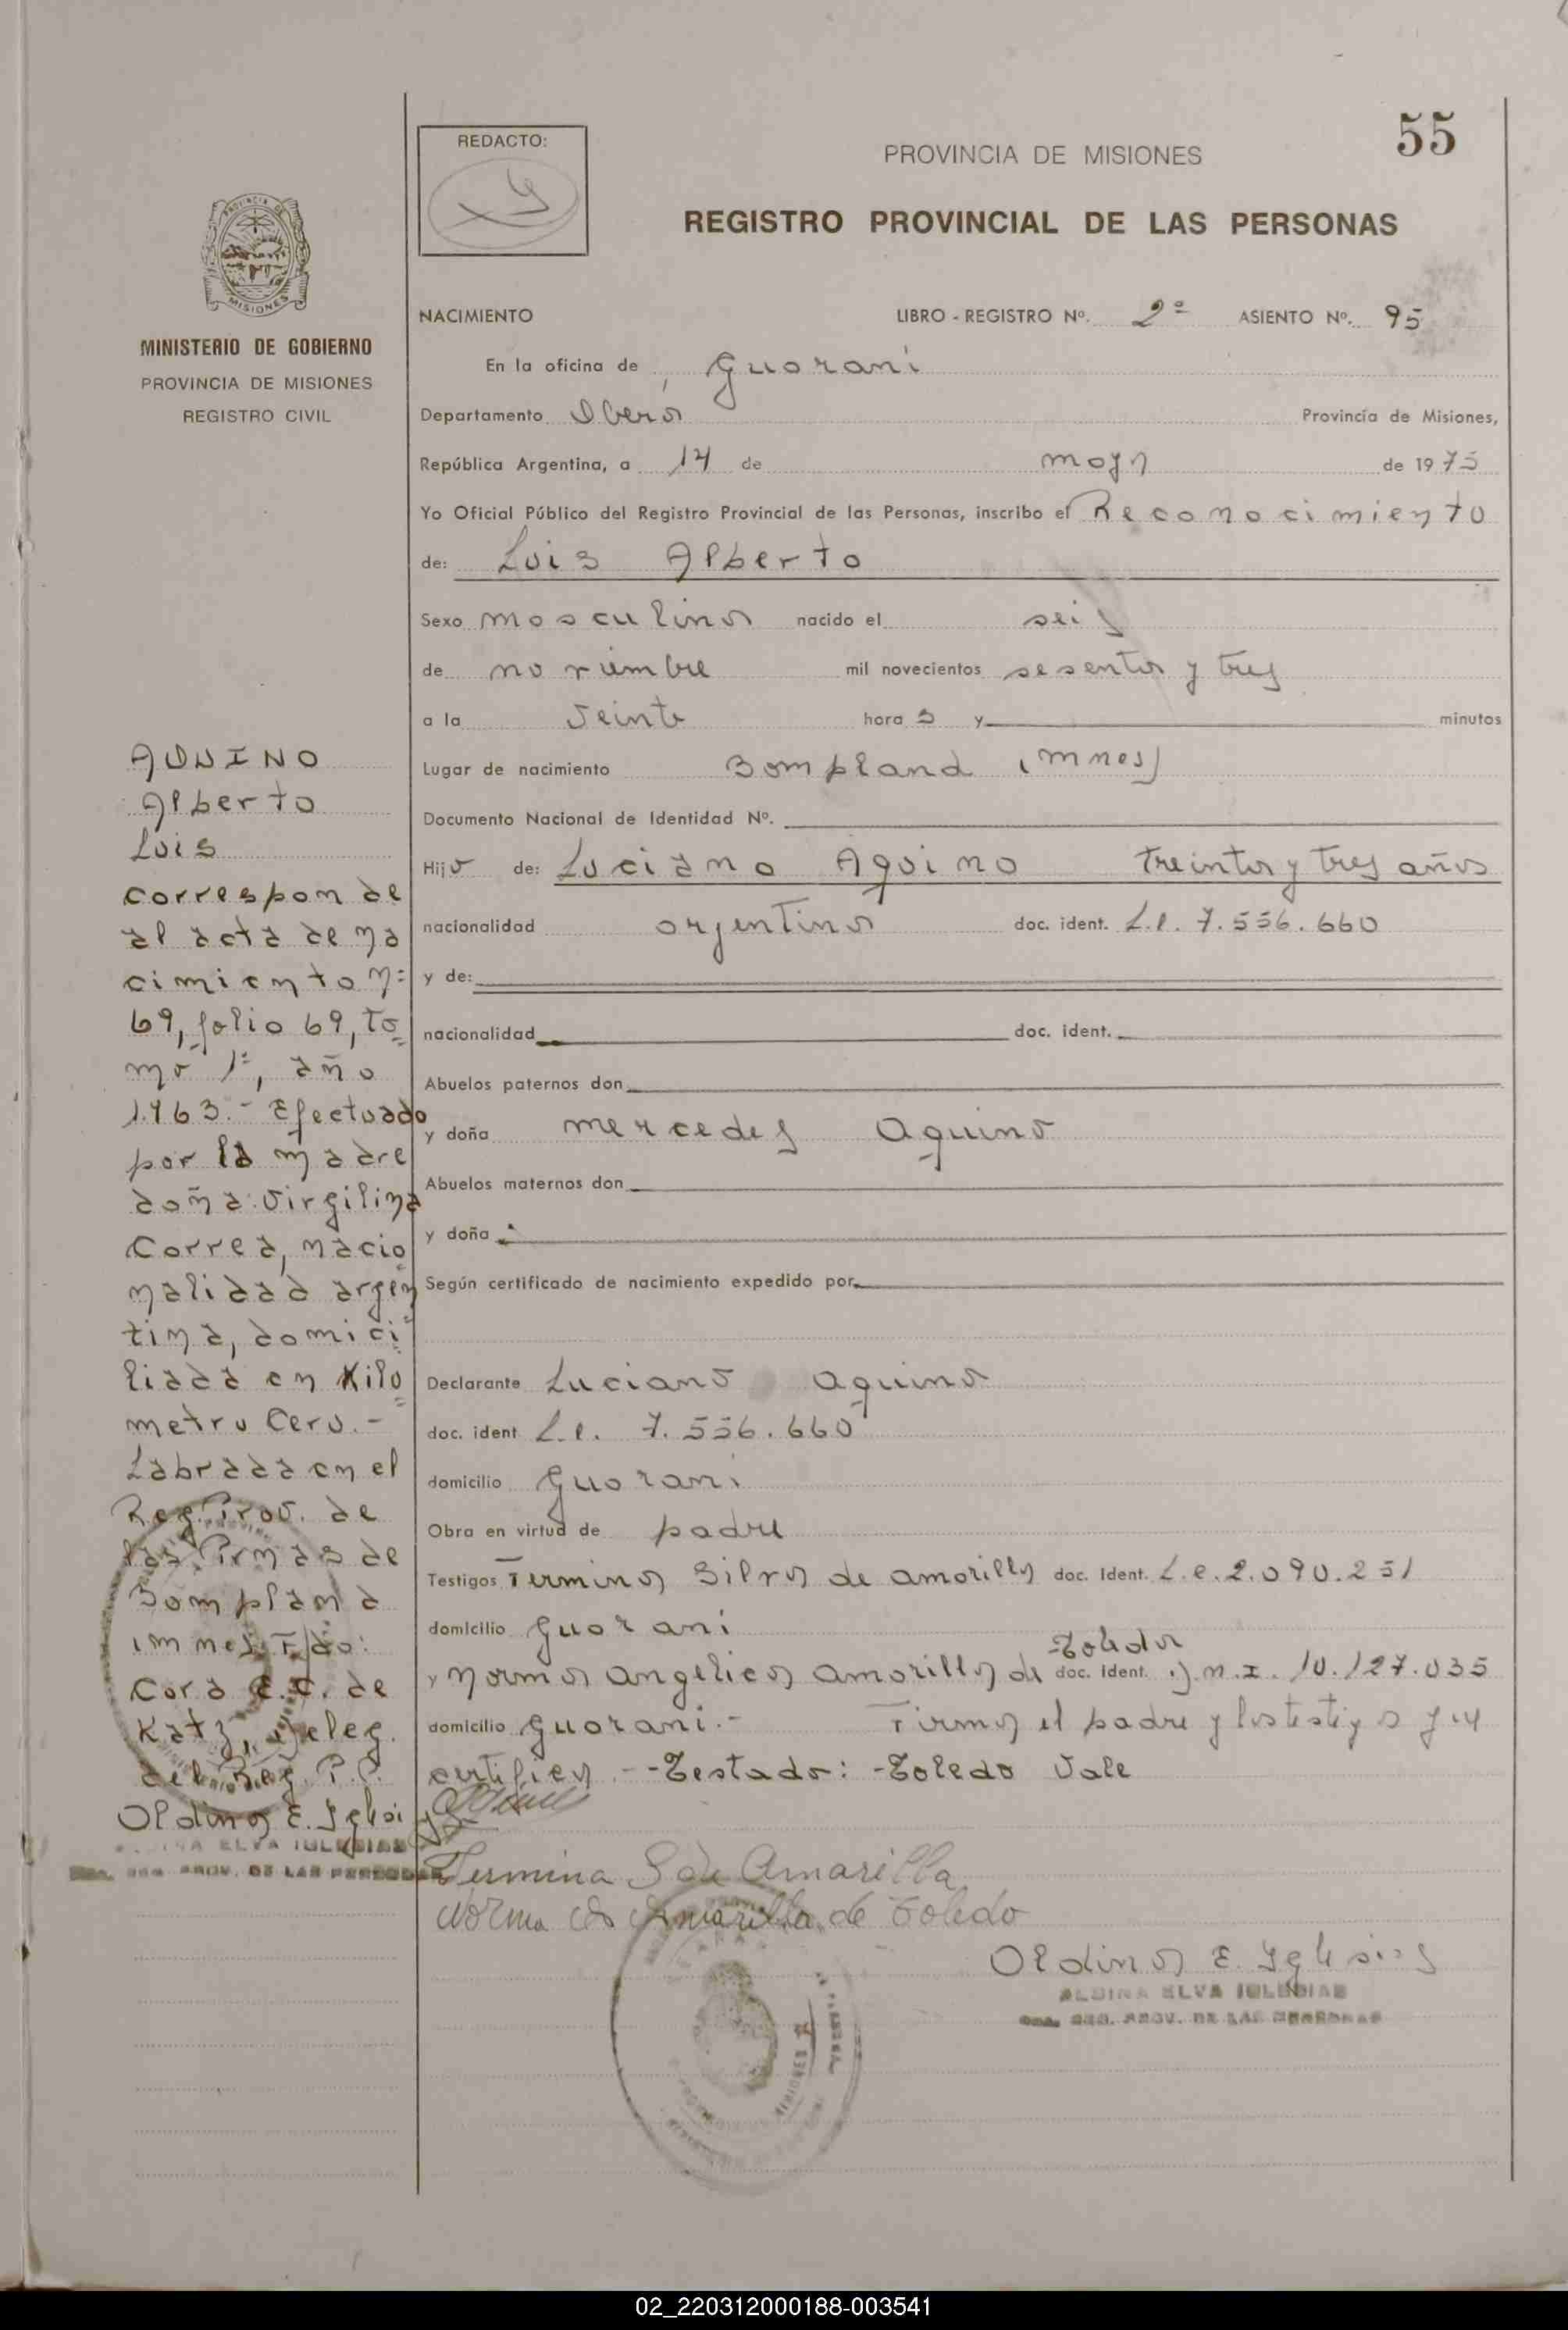 55
REDACTO:
PROVINCIA DE MISIONES
REGISTRO PROVINCIAL DE LAS PERSONAS
PROVINCIA DE
MISIONES
MINISTERIO DE GOBIERNO
PROVINCIA DE MISIONES
REGISTRO CIVIL
NACIMIENTO LIBRO - REGISTRO Nº. 2º ASIENTO Nº. 95
En la oficina de Guarani
Departamento Oberá Provincia de Misiones,
República Argentina, a 14 de mayo de 1975
Yo Oficial Público del Registro Provincial de las Personas, inscribo el Reconocimiento
de: Luis Alberto
Sexo masculino nacido el seis
de noviembre mil novecientos sesenta y tres
a la veinte hora s y minutos
Lugar de nacimiento Bompland (Mnes)
Documento Nacional de Identidad Nº.
Hijo de: Luciano Aquino treinta y tres años
nacionalidad argentina doc. ident. L.e. 7.556.660
y de:
nacionalidad doc. ident.
Abuelos paternos don
y doña Mercedes Aquino
Abuelos maternos don
y doña
Según certificado de nacimiento expedido por
Declarante Luciano Aquino
doc. ident L.e. 7.556.660
domicilio Guarani
Obra en virtud de padre
Testigos Termina Silva de Amarilla doc. Ident. L.e. 2.090.251
domicilio Guarani
-Toledo
y Norma Angelica Amarilla de doc. Ident. D.N.I. 10.127.035
domicilio Guarani.- Firma el padre y los testigos y se
certifica.- -Testado: -Toledo Vale
Termina S de Amarilla
Norma A Amarilla de Toledo
Aldina E. Iglesias
ALDINA ELVA IGLESIAS
REG. PROV. DE LAS PERSONAS
AQUINO
Alberto
Luis
corresponde
al acta de na
cimiento nº
69, folio 69, to
mo 1º, año
1.963.- Efectuado
por la madre
doña: Virgilina
Correa, nacio
nalidad argen
tina, domici
liada en Kilo
metro Cero.-
Labrada en el
Reg. Prov. de
las Prnas de
Bompland
(Mnes) Fdo:
Cora E.C. de
Katz, Deleg.
del Reg. P.P.
Aldina E. Iglesias
ELVA IGLESIAS
REG. PROV. DE LAS PERSONAS
02_220312000188-003541